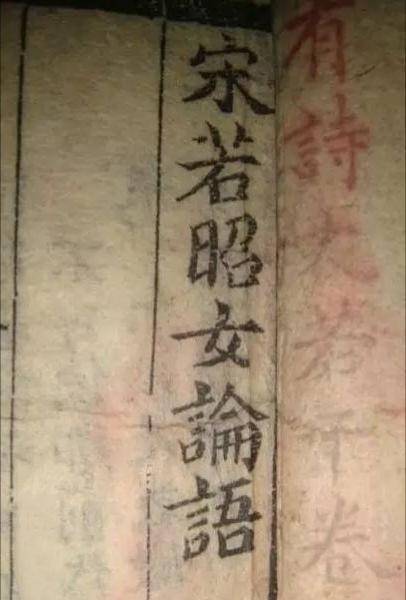 有詩文若干卷
宋若昭女論語